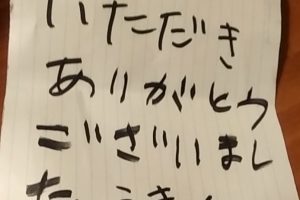 いただき
ありがとう
ございまし
た